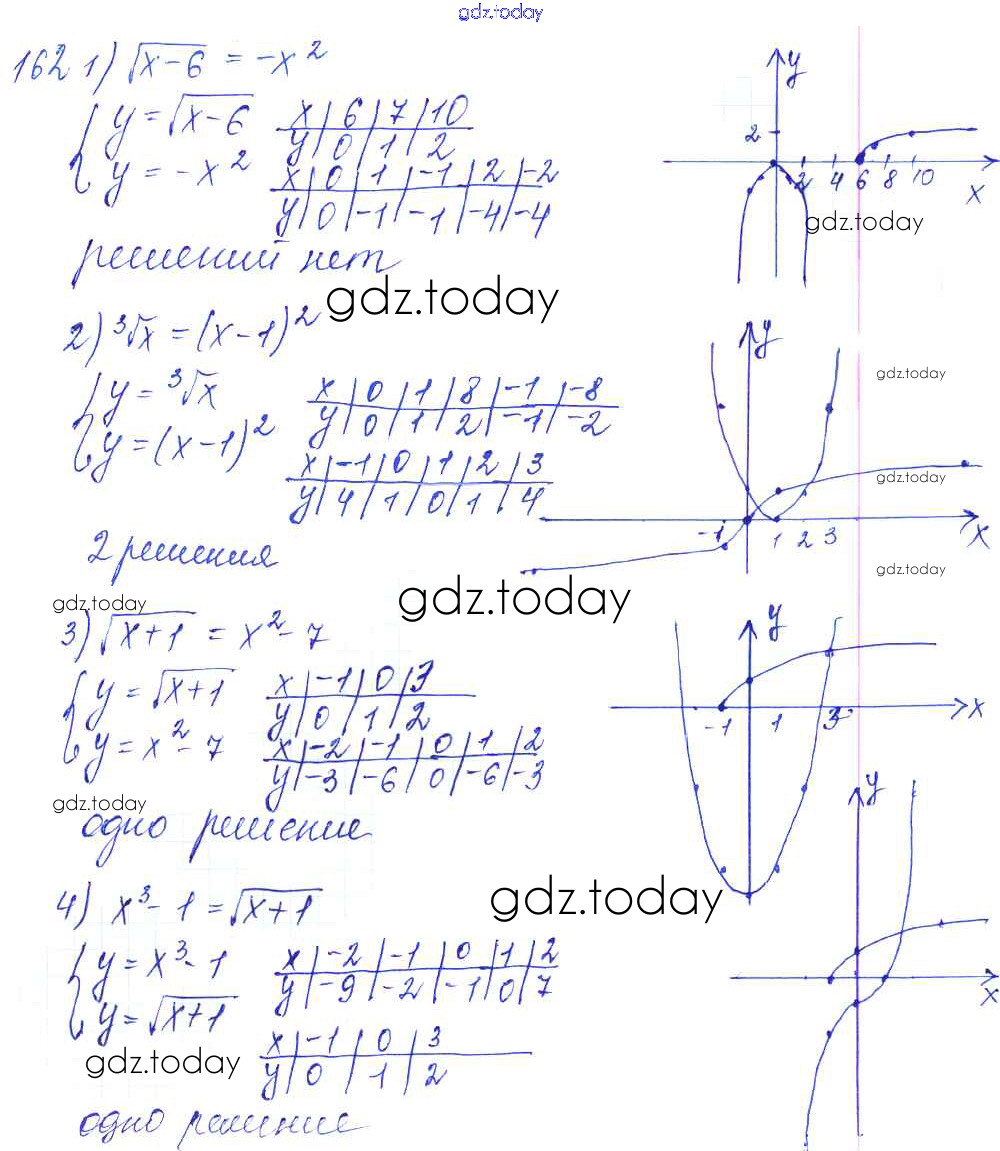 gdz.today
162 1) √x-6 = -x²
{ y = √x-6
x | 6 | 7 | 10
y | 0 | 1 | 2
{ y = -x²
x | 0 | 1 | -1 | 2 | -2
y | 0 | -1 | -1 | -4 | -4
решений нет
y
2
2 4 6 8 10
x
gdz.today
gdz.today
2) ³√x = (x-1)²
{ y = ³√x
x | 0 | 1 | 8 | -1 | -8
y | 0 | 1 | 2 | -1 | -2
{ y = (x-1)²
x | -1 | 0 | 1 | 2 | 3
y | 4 | 1 | 0 | 1 | 4
2 решения
y
gdz.today
gdz.today
-1 1 2 3
x
gdz.today
gdz.today
gdz.today
3) √x+1 = x²-7
{ y = √x+1
x | -1 | 0 | 3
y | 0 | 1 | 2
{ y = x²-7
x | -2 | -1 | 0 | 1 | 2
y | -3 | -6 | 0 | -6 | -3
gdz.today
одно решение
y
-1 1 3
x
4) x³-1 = √x+1
gdz.today
{ y = x³-1
x | -2 | -1 | 0 | 1 | 2
y | -9 | -2 | -1 | 0 | 7
{ y = √x+1
x | -1 | 0 | 3
y | 0 | 1 | 2
gdz.today
одно решение
y
x